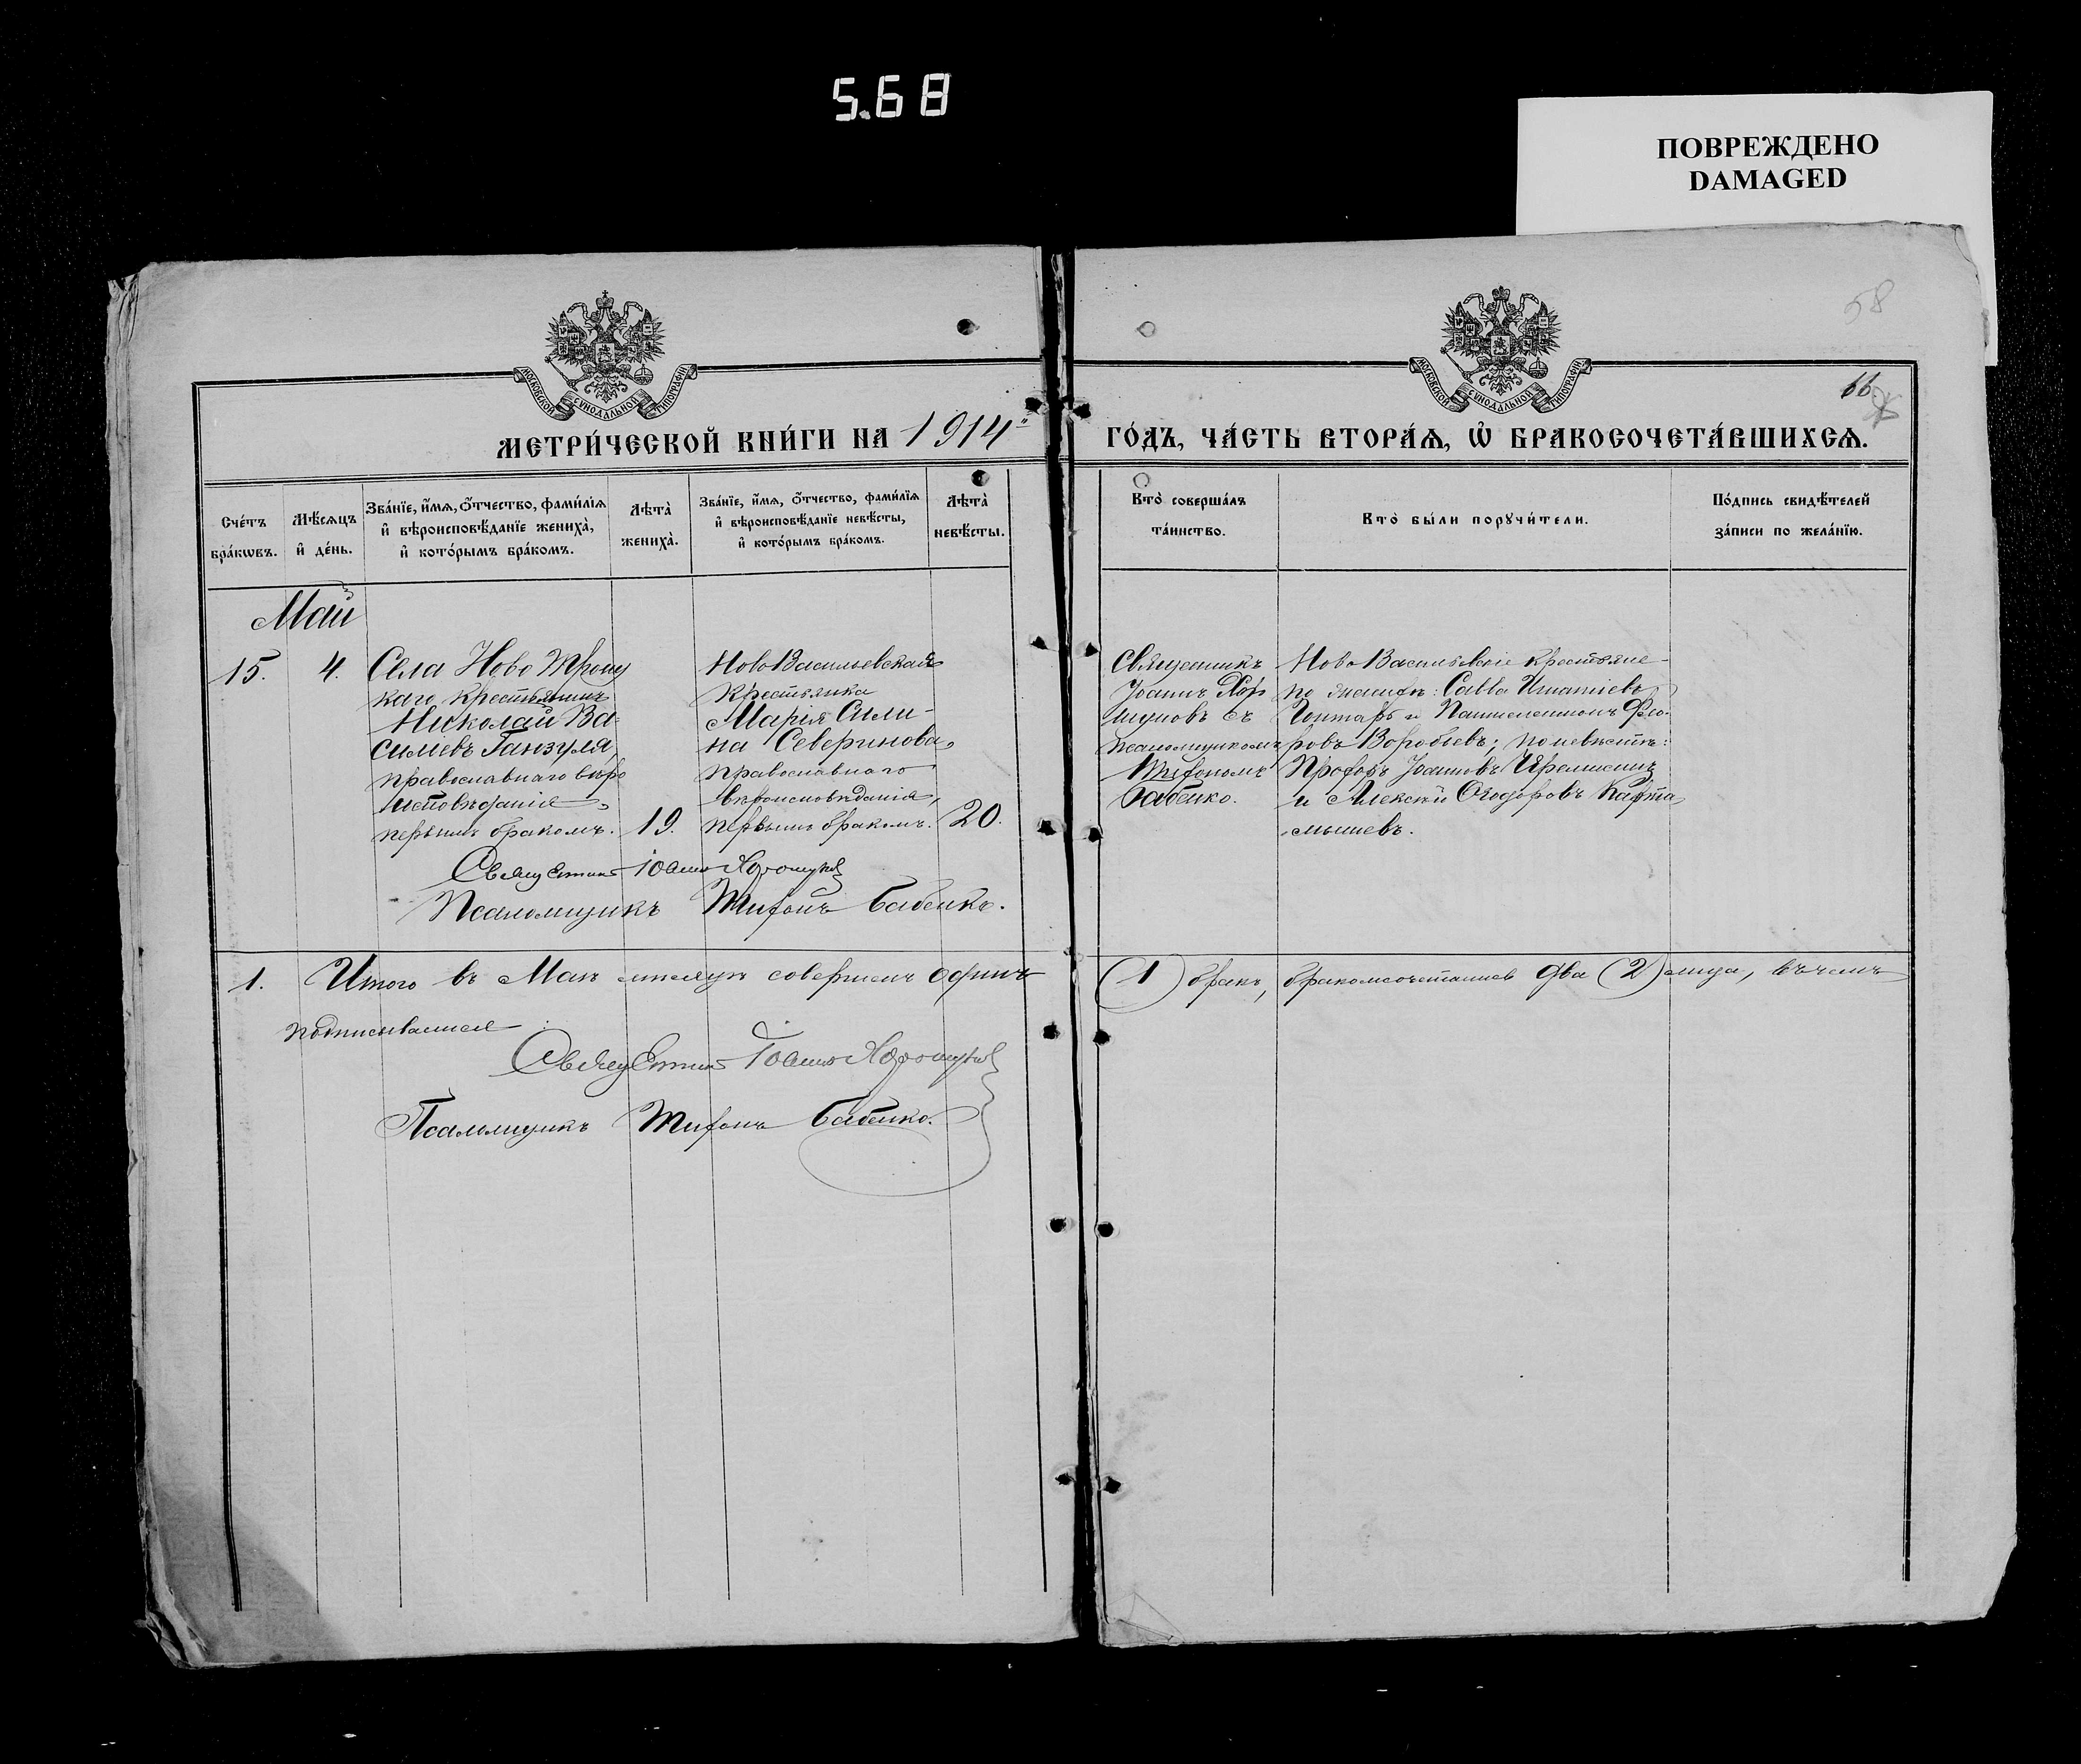 5.68
ПОВРЕЖДЕНО
DAMAGED
58
66
МОСКОВСКОЙ СѴНОДАЛЬНОЙ ТИПОГРАФІИ
МОСКОВСКОЙ СѴНОДАЛЬНОЙ ТИПОГРАФІИ
МЕТРИ́ЧЕСКОЙ КНИ́ГИ НА 1914 ГО́ДЪ, ЧА́СТЬ ВТОРА́Ѧ, Ѽ БРАКОСОЧЕТА́ВШИХСѦ.
Сче́тъ
бра́кѡвъ.
Мѣ́сѧцъ
и҆ де́нь.
Зва́нїе, и҆́мѧ, ѻ҆́тчество, фами́лїѧ
и҆ вѣроисповѣ́данїе жениха̀,
и҆ кото́рымъ бра́комъ.
Лѣта̀
жениха̀.
Зва́нїе, и҆́мѧ, ѻ҆́тчество, фами́лїѧ
и҆ вѣроисповѣ́данїе невѣ́сты,
и҆ кото́рымъ бра́комъ.
Лѣта̀
невѣ́сты.
Кто̀ соверша́лъ
та́инство.
Кто̀ бы́ли порꙋчи́тели.
По́дпись свидѣ́телей
за́писи по жела́нїю.
Май
15.
4.
Села Ново Троиц
каго крестьянинъ
Николай Ва-
силіевъ Ганзуля,
православнаго вѣро
исповѣданія,
первымъ бракомъ.
19.
НовоВасильевская
крестьянка
Марія Сили-
на Северинова,
православнаго
вѣроисповѣданія,
первымъ бракомъ.
20.
Священникъ
Іоаннъ Хор
шуновъ съ
псаломщикомъ
Тифономъ
Бабенко.
Ново Васильевскіе крестьяне
по женихѣ: Савва Игнатіевъ
Гонтарь и Пантелеимонъ Фео-
ровъ Воробьевъ; по невѣстѣ:
Профоръ Іоанновъ
и Алексѣй Ѳеодоровъ Карта
мышевъ.
Священникъ Іоаннъ
Псаломщикъ Тифонъ Бабенко.
1. Итого въ Маѣ мѣсяцѣ совершенъ одинъ (1) бракъ, бракосочеталось два (2) лица, въ чемъ
подписываемся:
Священникъ Іоаннъ
Псаломщикъ Тифонъ Бабенко.